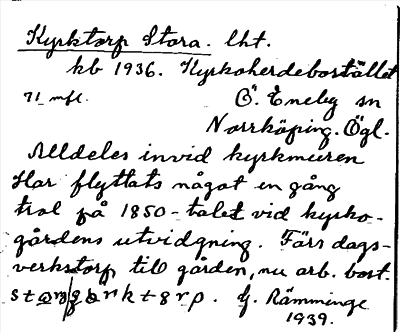 Kyrktorp Stora. lht.
kb 1936. Kyrkoherdebostället
71 mfl. Ö. Eneby sn
Norrköping. Ögl.
Alldeles invid kyrkmuren
Har flyttats något en gång
trol på 1850-talet vid kyrko-
gårdens utvidgning. Färr dags-
verkstorp till gården, nu arb. bost.
Hj. Rämminge
1939.